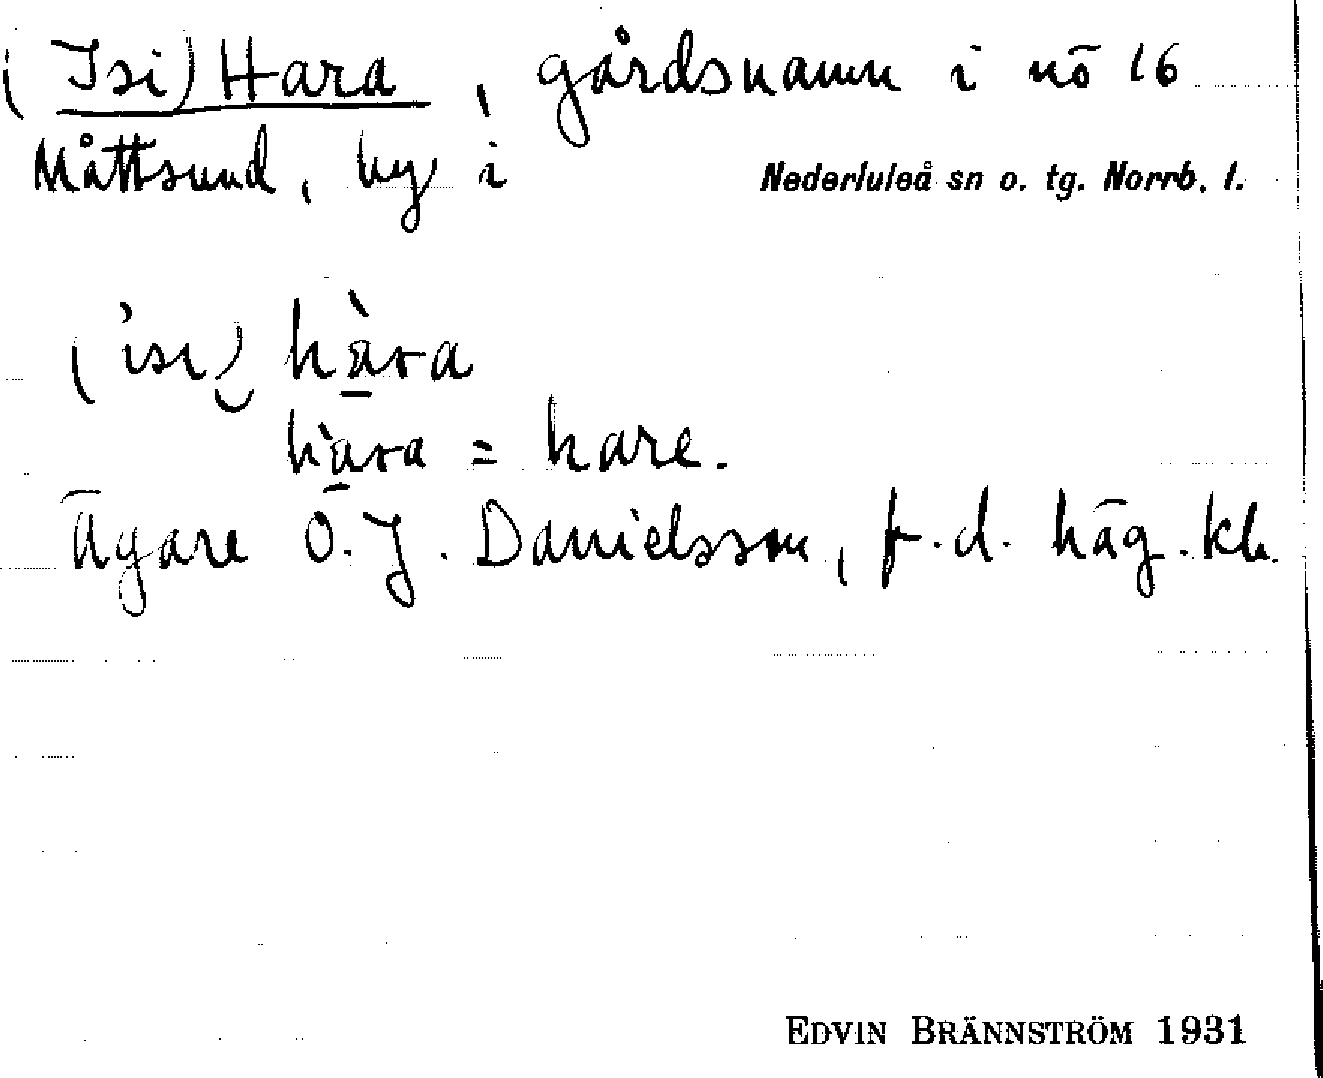 (Isi) Hara, gårdsnamn i nö 16
Måttsund, by i Nederluleå sn o. tg. Norrb. l.
(ìsi) hàra
hàra = hare.
Ägare O. J. Danielsson, f.d. häg. kh.
EDVIN BRÄNNSTRÖM 1931